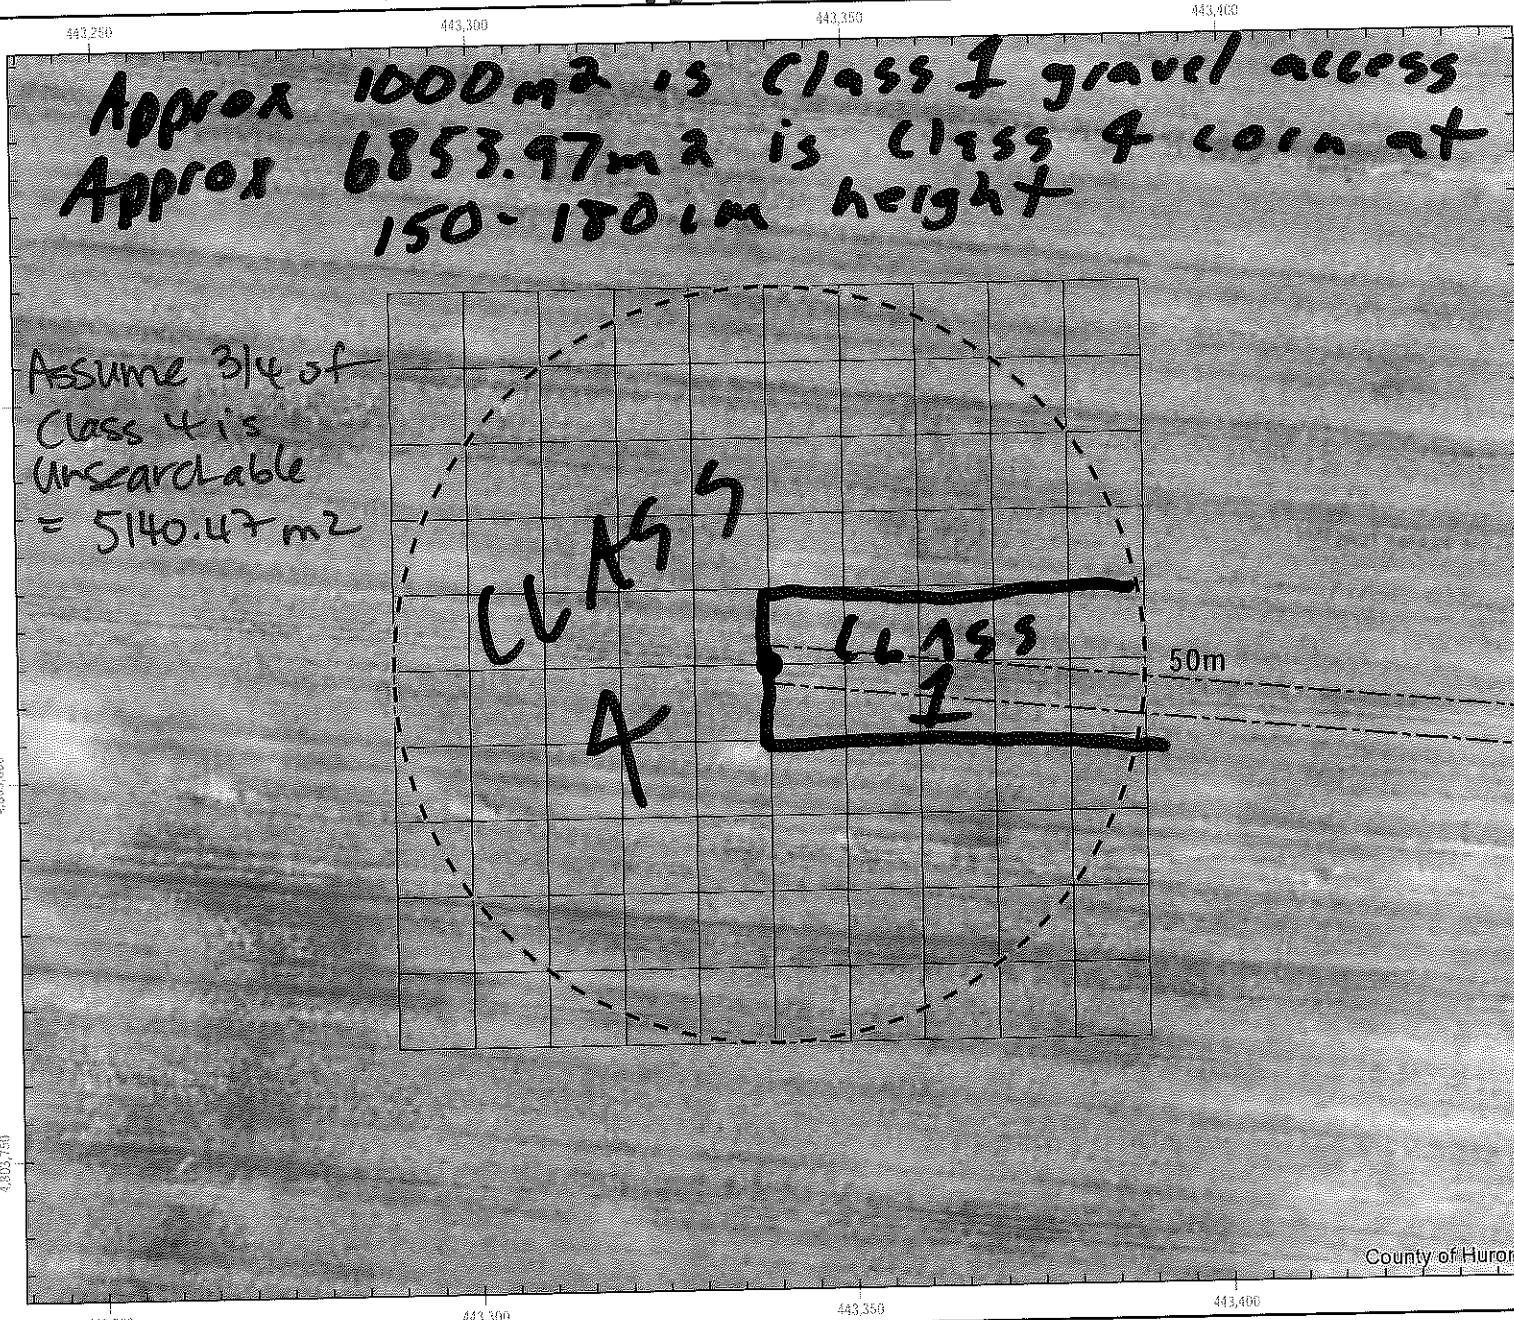 443,250
443,300
443,350
443,400
Approx 1000m2 is Class 1 gravel access
Approx 6853.97m2 is Class 4 corn at
150-180cm height
Assume 3/4 of
Class 4 is
Unsearchable
= 5140.47m2
CLASS
4
CLASS
1
50m
4,803,750
County of Huron
443,300
443,350
443,400